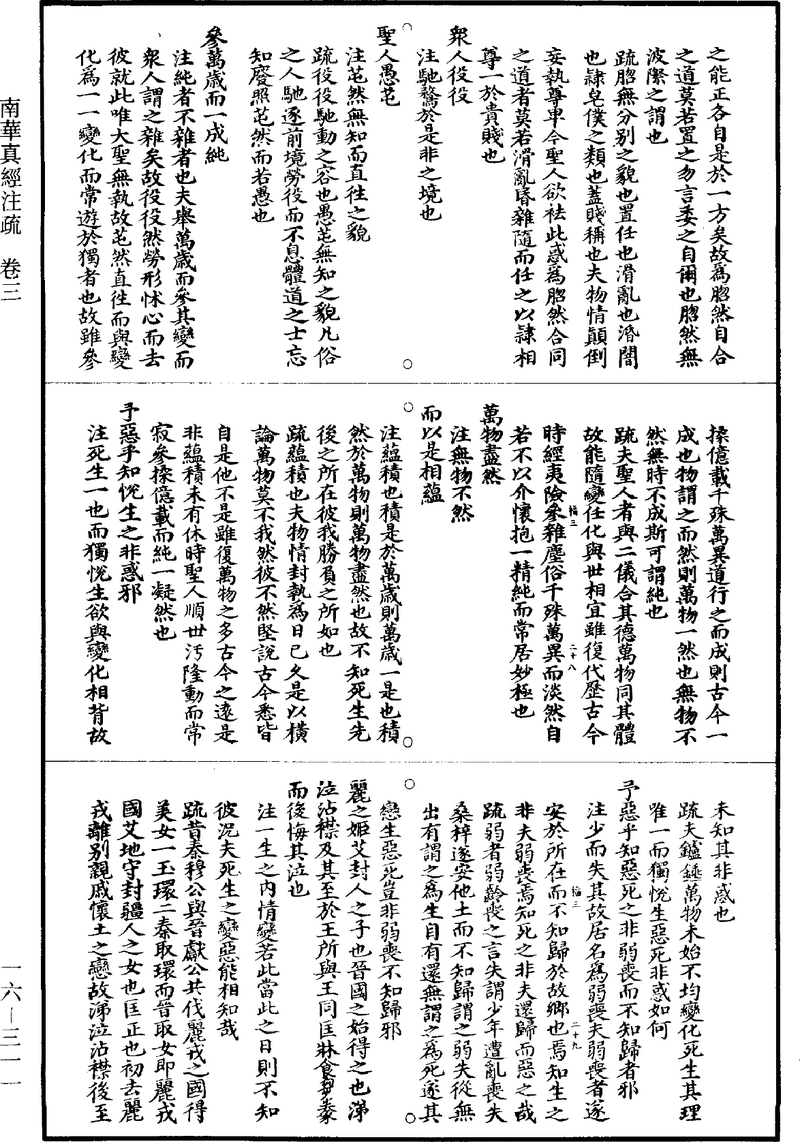 之能正各自是於一方矣故為脗然自合
之道莫若置之勿言委之自爾也脗然無
波際之謂也
疏脗無分別之貌也置任也滑亂也涽闇
也隸皂僕之類也蓋賤稱也夫物情顛倒
妄執尊卑今聖人欲祛此惑為脗然合同
之道者莫若滑亂昏雜隨而任之以隸相
尊一於貴賤也
眾人役役
注馳騖於是非之境也
聖人愚芚
注芚然無知而直往之貌
疏役役馳動之容也愚芚無知之貌凡俗
之人馳逐前境勞役而不息體道之士忘
知廢照芚然而若愚也
參萬歲而一成純
注純者不雜者也夫舉萬歲而參其變而
眾人謂之雜矣故役役然勞形怵心而去
彼就此唯大聖無執故芚然直往而與變
化為一一變化而常遊於獨者也故雖參
揉億載千殊萬異道行之而成則古今一
成也物謂之而然則萬物一然也無物不
然無時不成斯可謂純也
疏夫聖人者與二儀合其德萬物同其體
故能隨變任化與世相宜雖復代歷古今
時經夷險參雜塵俗千殊萬異而淡然自
若不以介懷抱一精純而常居妙極也
萬物盡然
注無物不然
而以是相蘊
注蘊積也積是於萬歲則萬歲一是也積
然於萬物則萬物盡然也故不知死生先
後之所在彼我勝負之所如也
疏蘊積也夫物情封執為日已久是以橫
論萬物莫不我然彼不然堅說古今悉皆
自是他不是雖復萬物之多古今之遠是
非蘊積未有休時聖人順世汚隆動而常
寂參揉億載而純一凝然也
予惡乎知悅生之非惑邪
注死生一也而獨悅生欲與變化相背故
未知其非惑也
疏夫鑪錘萬物未始不均變化死生其理
唯一而獨悅生惡死非惑如何
予惡乎知惡死之非弱喪而不知歸者邪
注少而失其故居名為弱喪夫弱喪者遂
安於所在而不知歸於故鄉也焉知生之
非夫弱喪焉知死之非夫還歸而惡之哉
疏弱者弱齡喪之言失謂少年遭亂喪失
桑梓遂安他土而不知歸謂之弱失從無
出有謂之為生自有還無謂之為死遂其
戀生惡死豈非弱喪不知歸邪
麗之姬艾封人之子也晉國之始得之也涕
泣沾襟及其至於王所與王同匡牀食芻豢
而後悔其泣也
注一生之內情變若此當此之日則不知
彼況夫死生之變惡能相知哉
疏昔秦穆公與晉獻公共伐麗戎之國得
美女一玉環二秦取環而晉取女即麗戎
國艾地守封疆人之女也匡正也初去麗
戎離別親戚懷土之戀故涕泣沾襟後至
南華真經注疏 卷三
一六—三一一